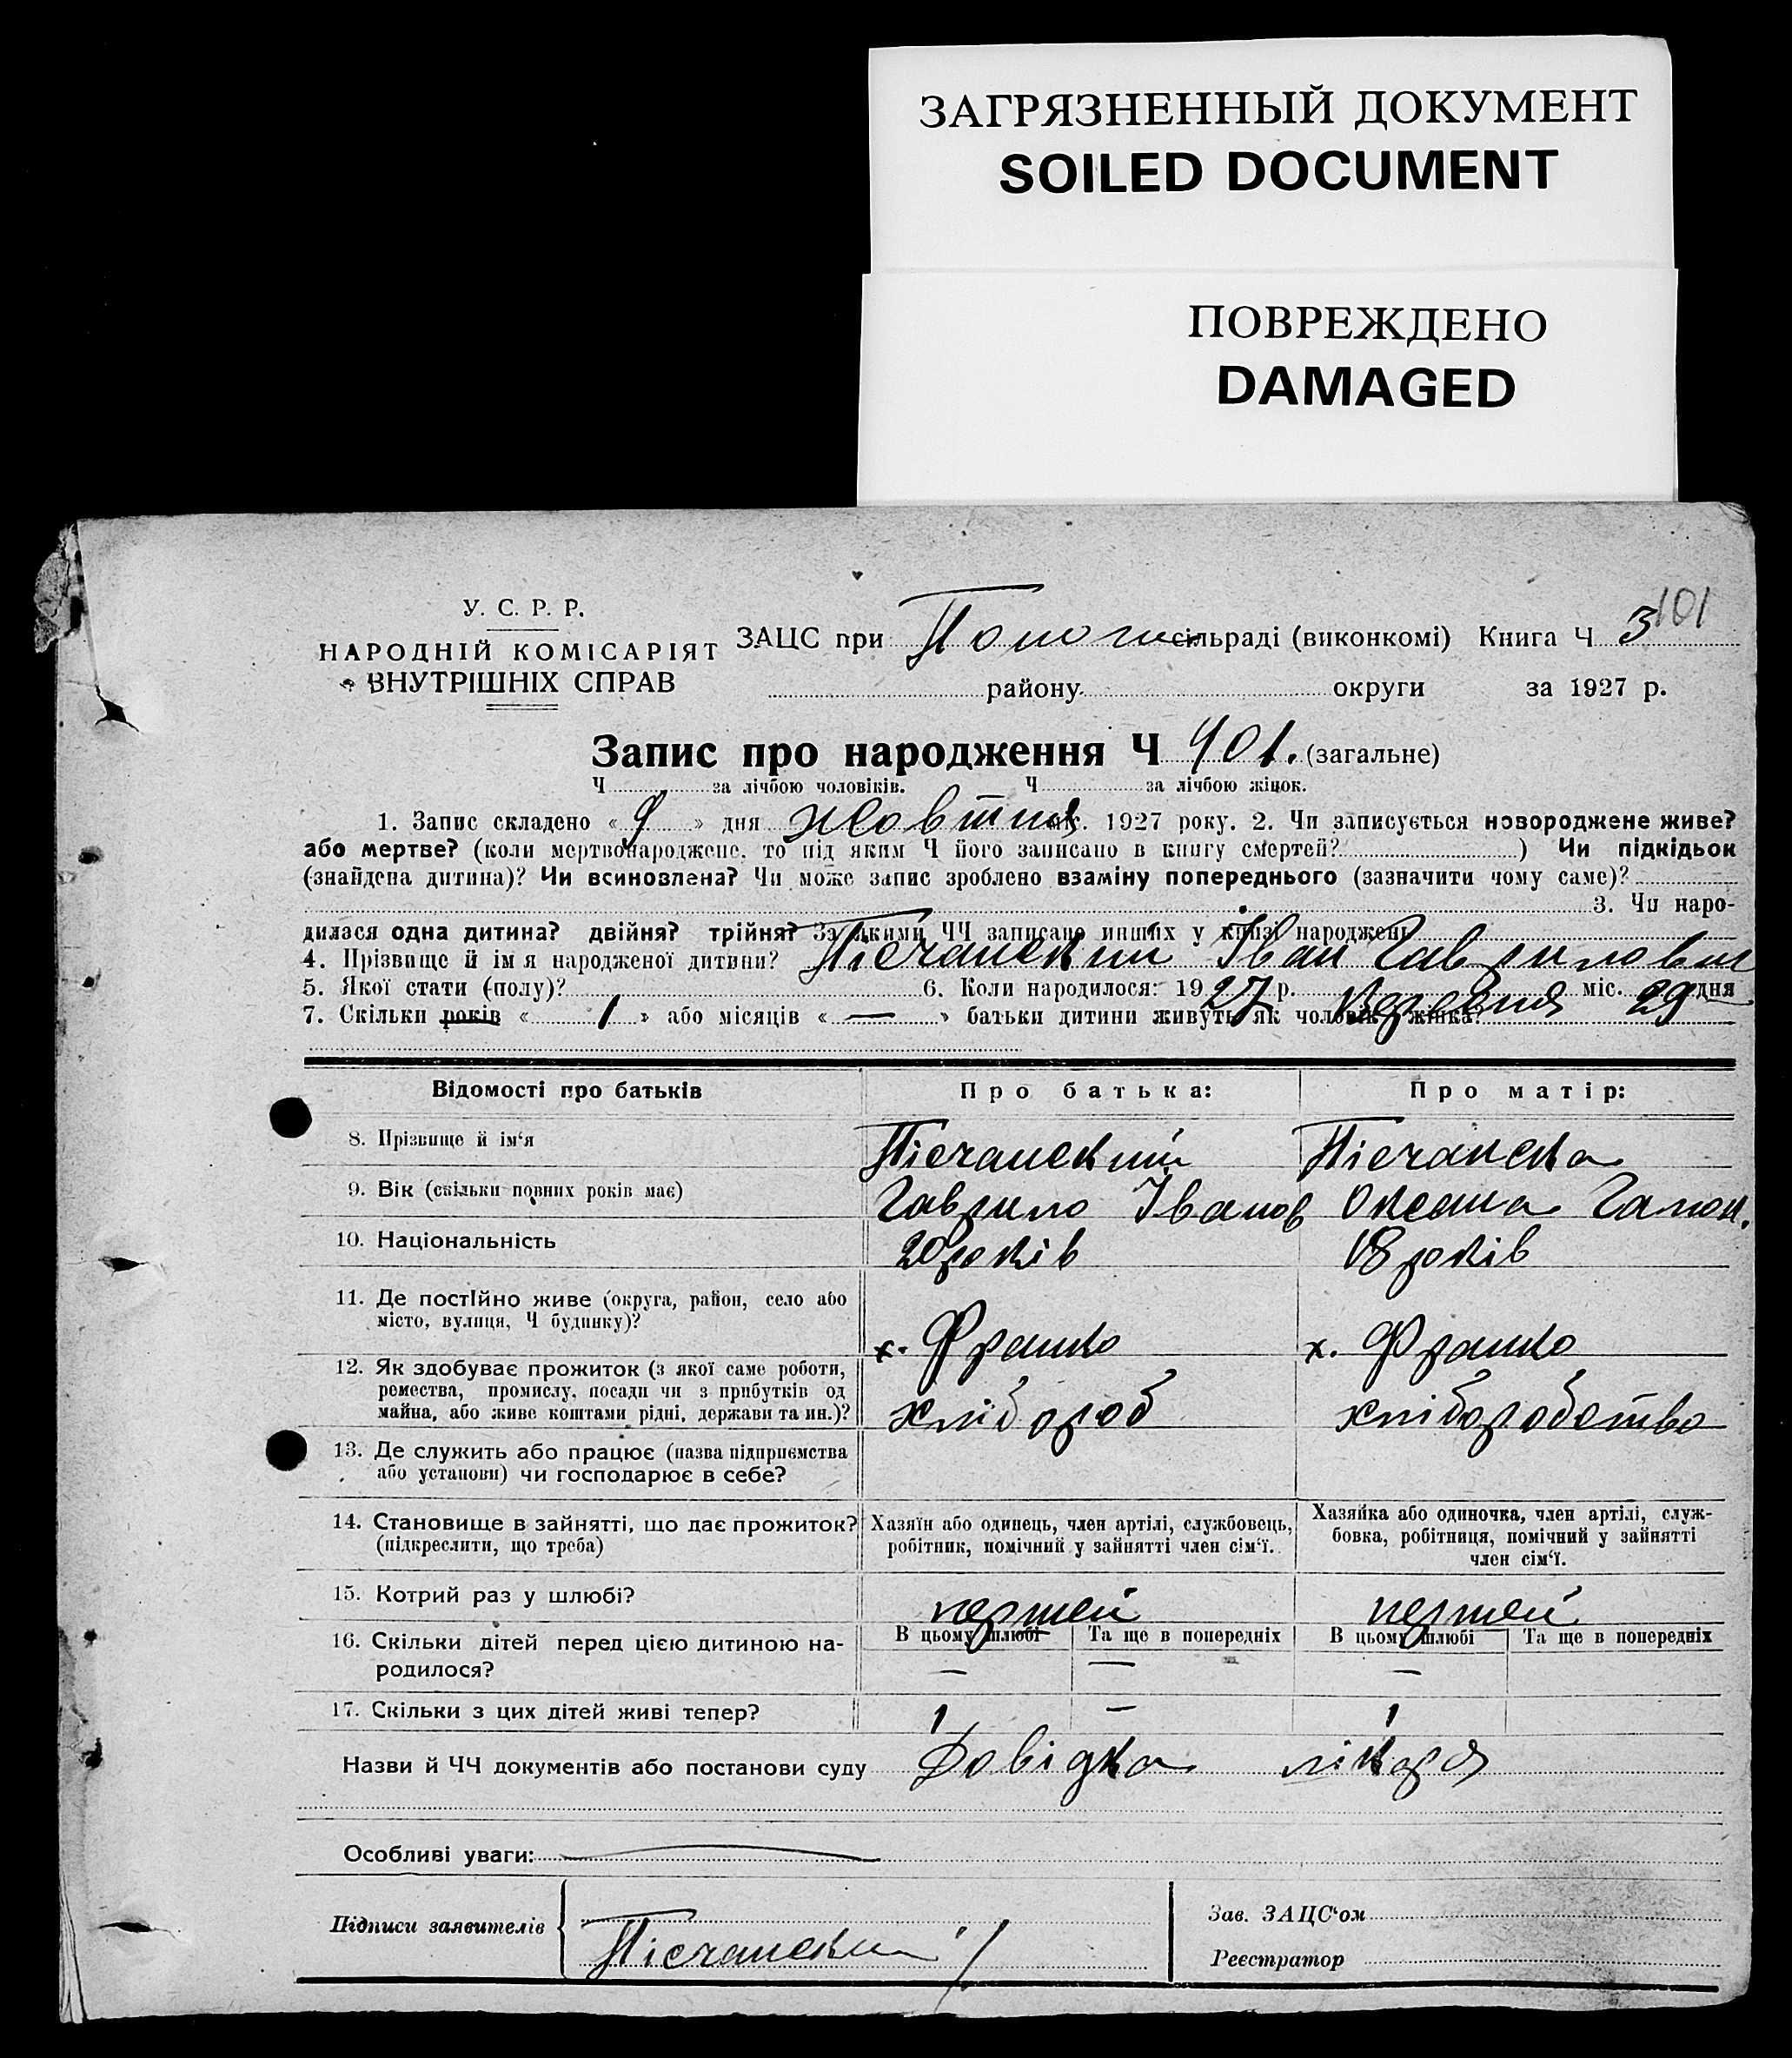 ЗАГРЯЗНЕННЫЙ ДОКУМЕНТ
SOILED DOCUMENT
ПОВРЕЖДЕНО
DAMAGED
101
У. С. Р. Р.
НАРОДНІЙ КОМІСАРІЯТ
ВНУТРІШНІХ СПРАВ
ЗАЦС при сільраді (виконкомі) Книга Ч 3
району округи за 1927 р.
Запис про народження Ч 401. (загальне)
Ч за лічбою чоловіків. Ч за лічбою жінок.
1. Запис складено « 9 » дня жовтня міс. 1927 року. 2. Чи записується новороджене живе?
або мертве? (коли мертвонароджене, то під яким Ч його записано в книгу смертей? ) Чи підкідьок
(знайдена дитина)? Чи всиновлена? Чи може запис зроблено взаміну попереднього (зазначити чому саме)?
3. Чи наро-
дилася одна дитина? двійня? трійня? За якими ЧЧ записано инших у книзі народжень
4. Прізвище й ім я народженої дитини? Пісчанский Іван Гаврилович
5. Якої стати (полу)? 6. Коли народилося: 1927 р. Вересня міс. 29 дня
7. Скільки років « 1 » або місяців « — » батьки дитини живуть як чоловік жінка?
Відомості про батьків Про батька: Про матір:
8. Прізвище й ім‘я Пісчанский Пісчанска
9. Вік (скільки повних років має) Гаврило Іванов Оксана
10. Національність 20 років 18 років
11. Де постІйно живе (округа, район, село або
місто, вулиця, Ч будинку)? х. Франко х. Франко
12. Як здобуває прожиток (з якої саме роботи,
ремества, промислу, посади чи з прибутків од
майна, або живе коштами рідні, держави та ин.)? хлібороб хліборобство
13. Де служить або працює (назва підприємства
або установи) чи господарює в себе?
14. Становище в зайнятті, що дає прожиток? Хазяїн або одинець, член артілі, службовець, Хазяйка або одиночка, член артілі, служ-
(підкреслити, що треба) робітник, помічний у зайнятті член сім‘ї. бовка, робітниця, помічний у зайнятті
член сім‘ї.
15. Котрий раз у шлюбі? першей першей
16. Скільки дітей перед цією дитиною на- В цьому шлюбі Та ще в попередніх В цьому шлюбі Та ще в попередніх
родилося? — — —
17. Скільки з цих дітей живі тепер? 1 — 1
Назви й ЧЧ документів або постанови суду Довідка лікаря
Особливі уваги:
Підписи заявителів Зав. ЗАЦС‘ом
Пісчанский Реєстратор